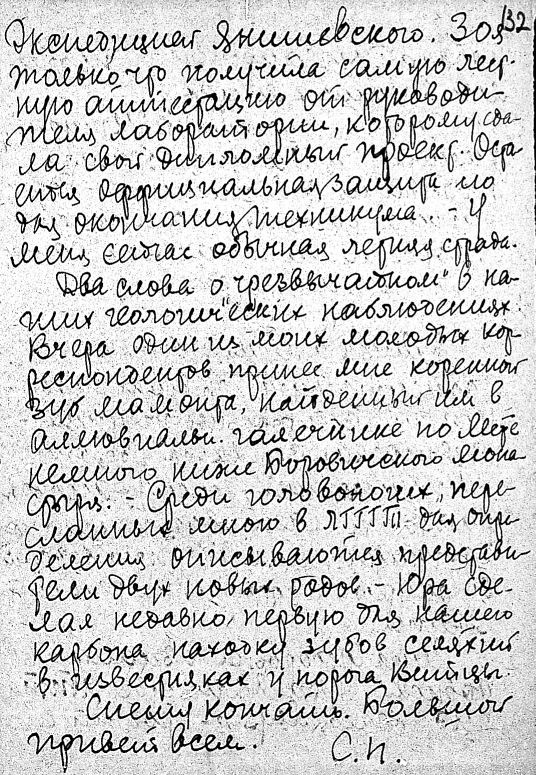 132
Экспедицией Янишевского. Зоя
только что получила самую лест-
ную аттестацию от руководи-
теля лаборатории, которому сда-
ла свой дипломный проект. Оста
ется официальная защита
для окончания техникума. - У
меня сейчас обычная летняя страда.
Два слова о "чрезвычайном" в на-
ших геологических наблюдениях.
Вчера один из моих молодых кор-
респондентов принес мне коренной
зуб мамонта, найденный им в
аллювиальн. галечнике по Мсте
немного ниже Боровичского мона
стыря. - Среди головоногих, пере-
сланных мною в для опре-
деления описываются представи-
тели двух новых родов. - Юра сде-
лал недавно первую для нашего
карбона находку зубов селяхий
в известняках у порога Витцы.
Спешу кончать. Большой
привет всем. С.П.